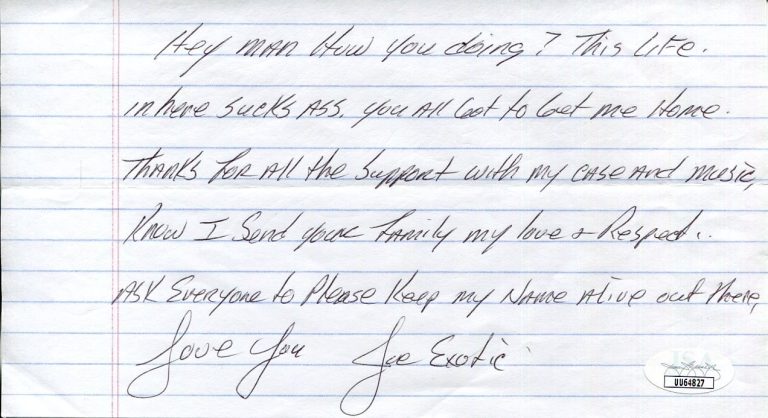 Hey man How you doing? This Life.
in here sucks ass. you all Got to Get me Home.
Thanks for all the support with my case and music,
Know I Send your family my love & Respect..
Ask Everyone to Please Keep my Name Alive out there,
Love You Joe Exotic
UU64827